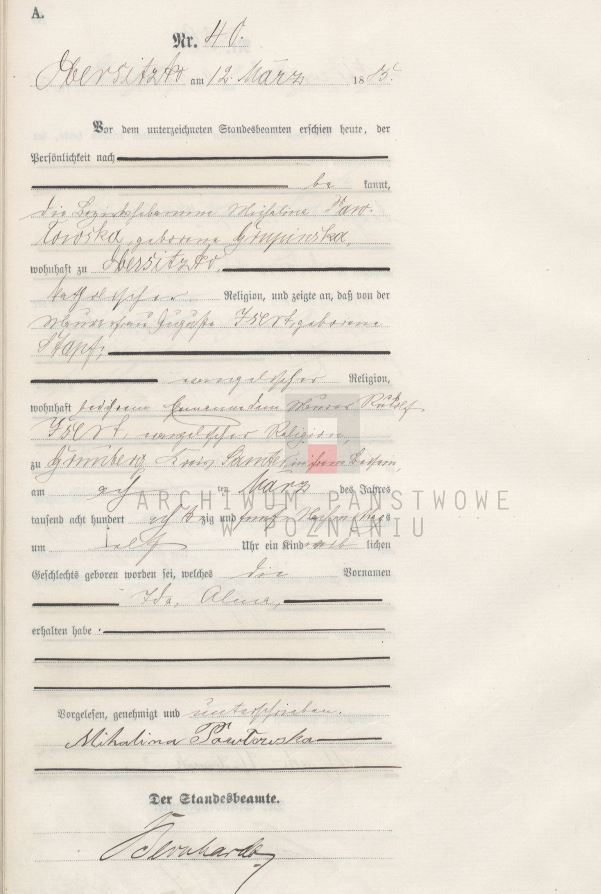 A.
Nr. 40.
Obersitzko am 12. März 1885.
Vor dem unterzeichneten Standesbeamten erschien heute, der
Persönlichkeit nach
be kannt,
die Bezirkshebamme Michalina Paw-
lowska geborene Grupinska,
wohnhaft zu Obersitzko,
katholischer Religion, und zeigte an, daß von der
Maurerfrau Auguste geborene
Stapf,
evangelischer Religion,
wohnhaft bei ihrem Ehemann dem Maurer Rudolf
evangelischer Religion
zu Grünberg Kreis Samter, in ihrem Beisein,
am ten März des Jahres
tausend acht hundert acht zig und fünf Nachmittags
um elf Uhr ein Kind weib lichen
Geschlechts geboren worden sei, welches die Vornamen
Ida, Alma,
erhalten habe.
Vorgelesen, genehmigt und unterschrieben.
Mihalina Pawlowska
Der Standesbeamte.
ARCHIWUM PAŃSTWOWE
W POZNANIU